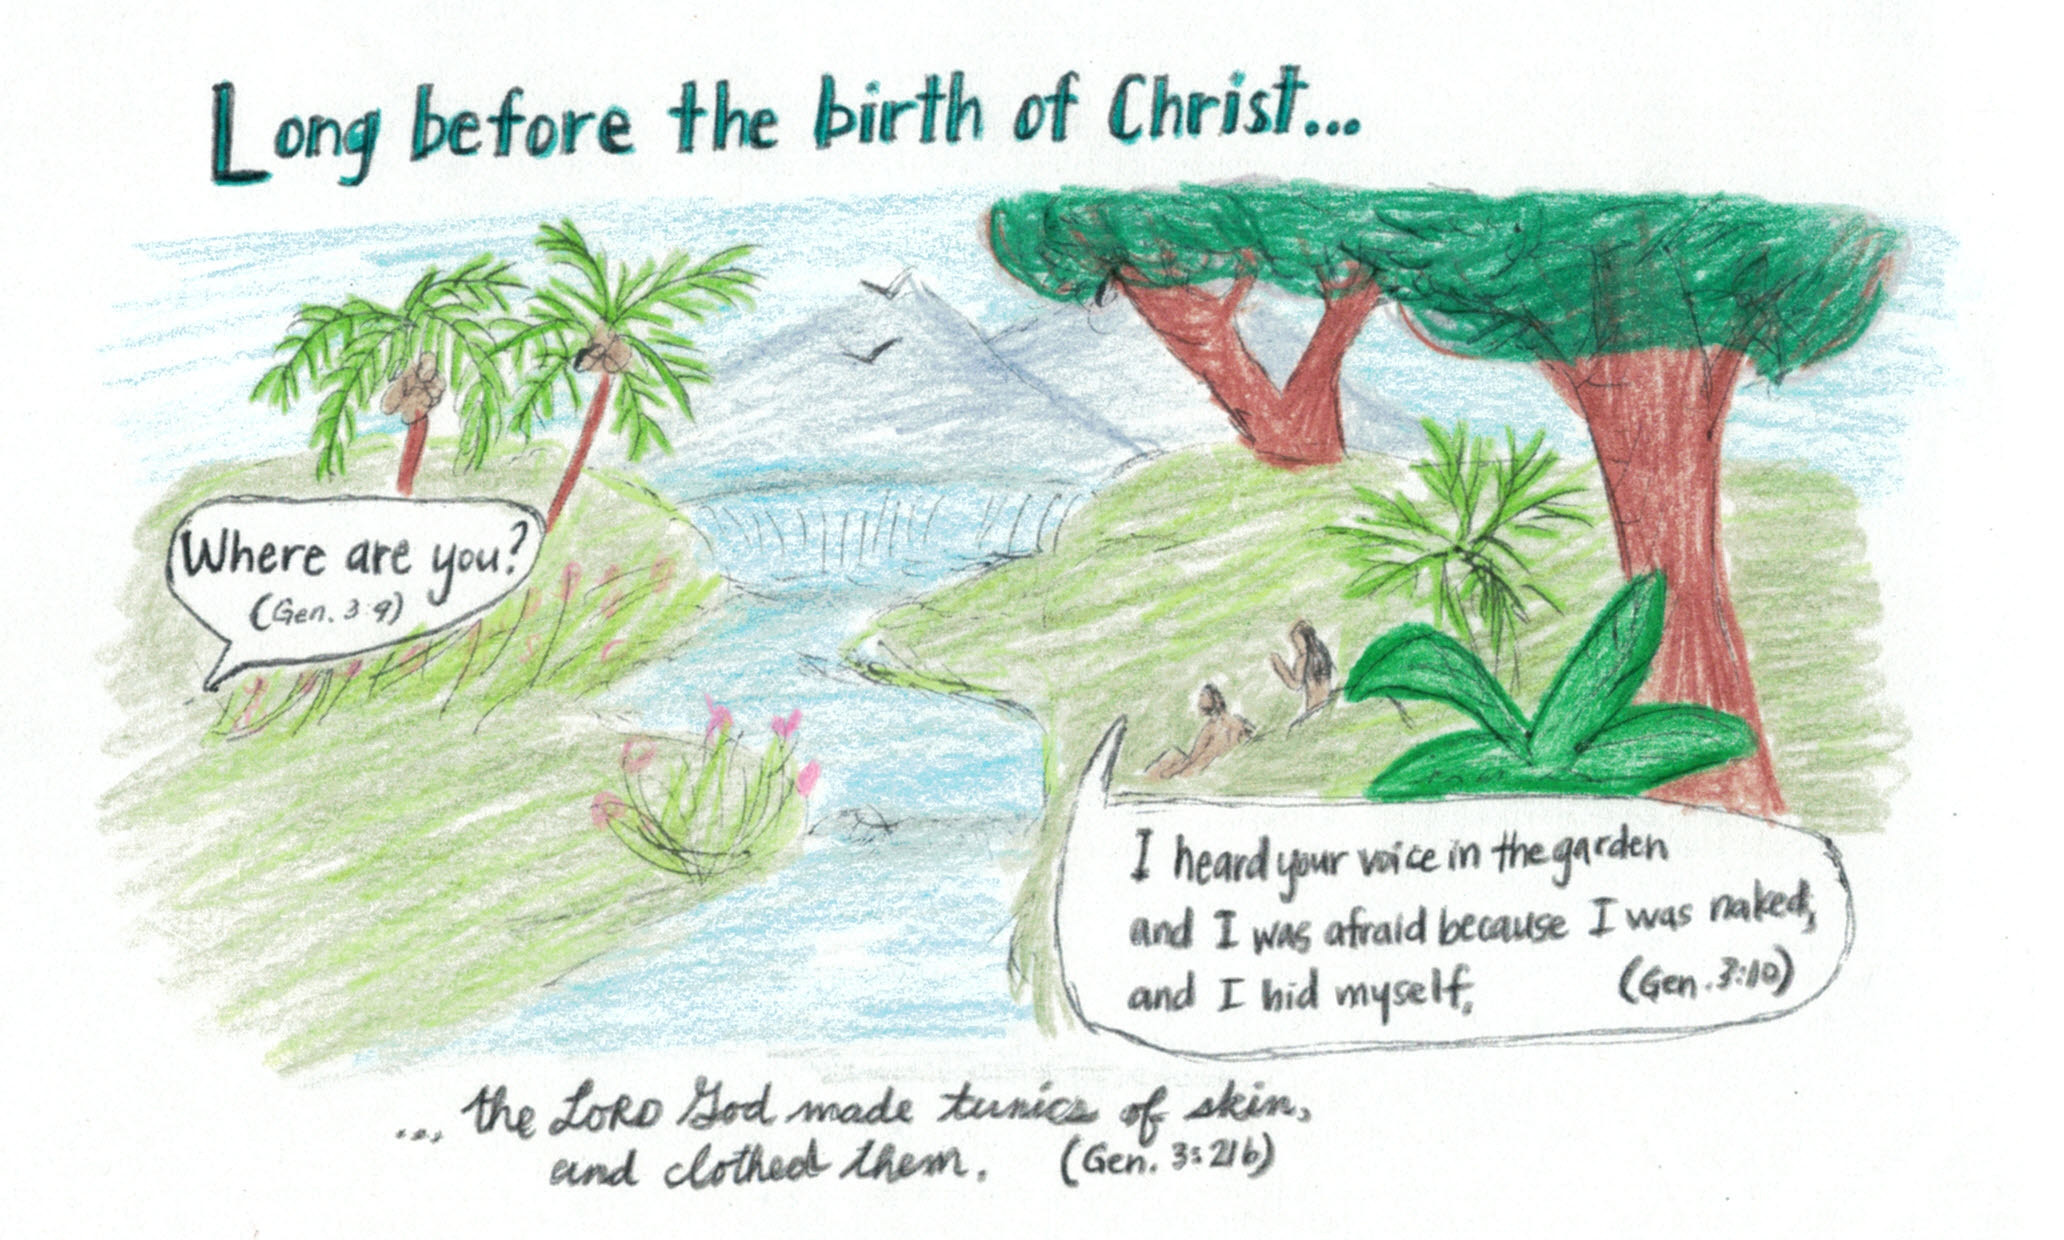 Long before the birth of Christ...
Where are you?
(Gen. 3:9)
I heard your voice in the garden
and I was afraid because I was naked;
and I hid myself.
(Gen. 3:10)
... the LORD God made tunics of skin,
and clothed them. (Gen. 3:21b)